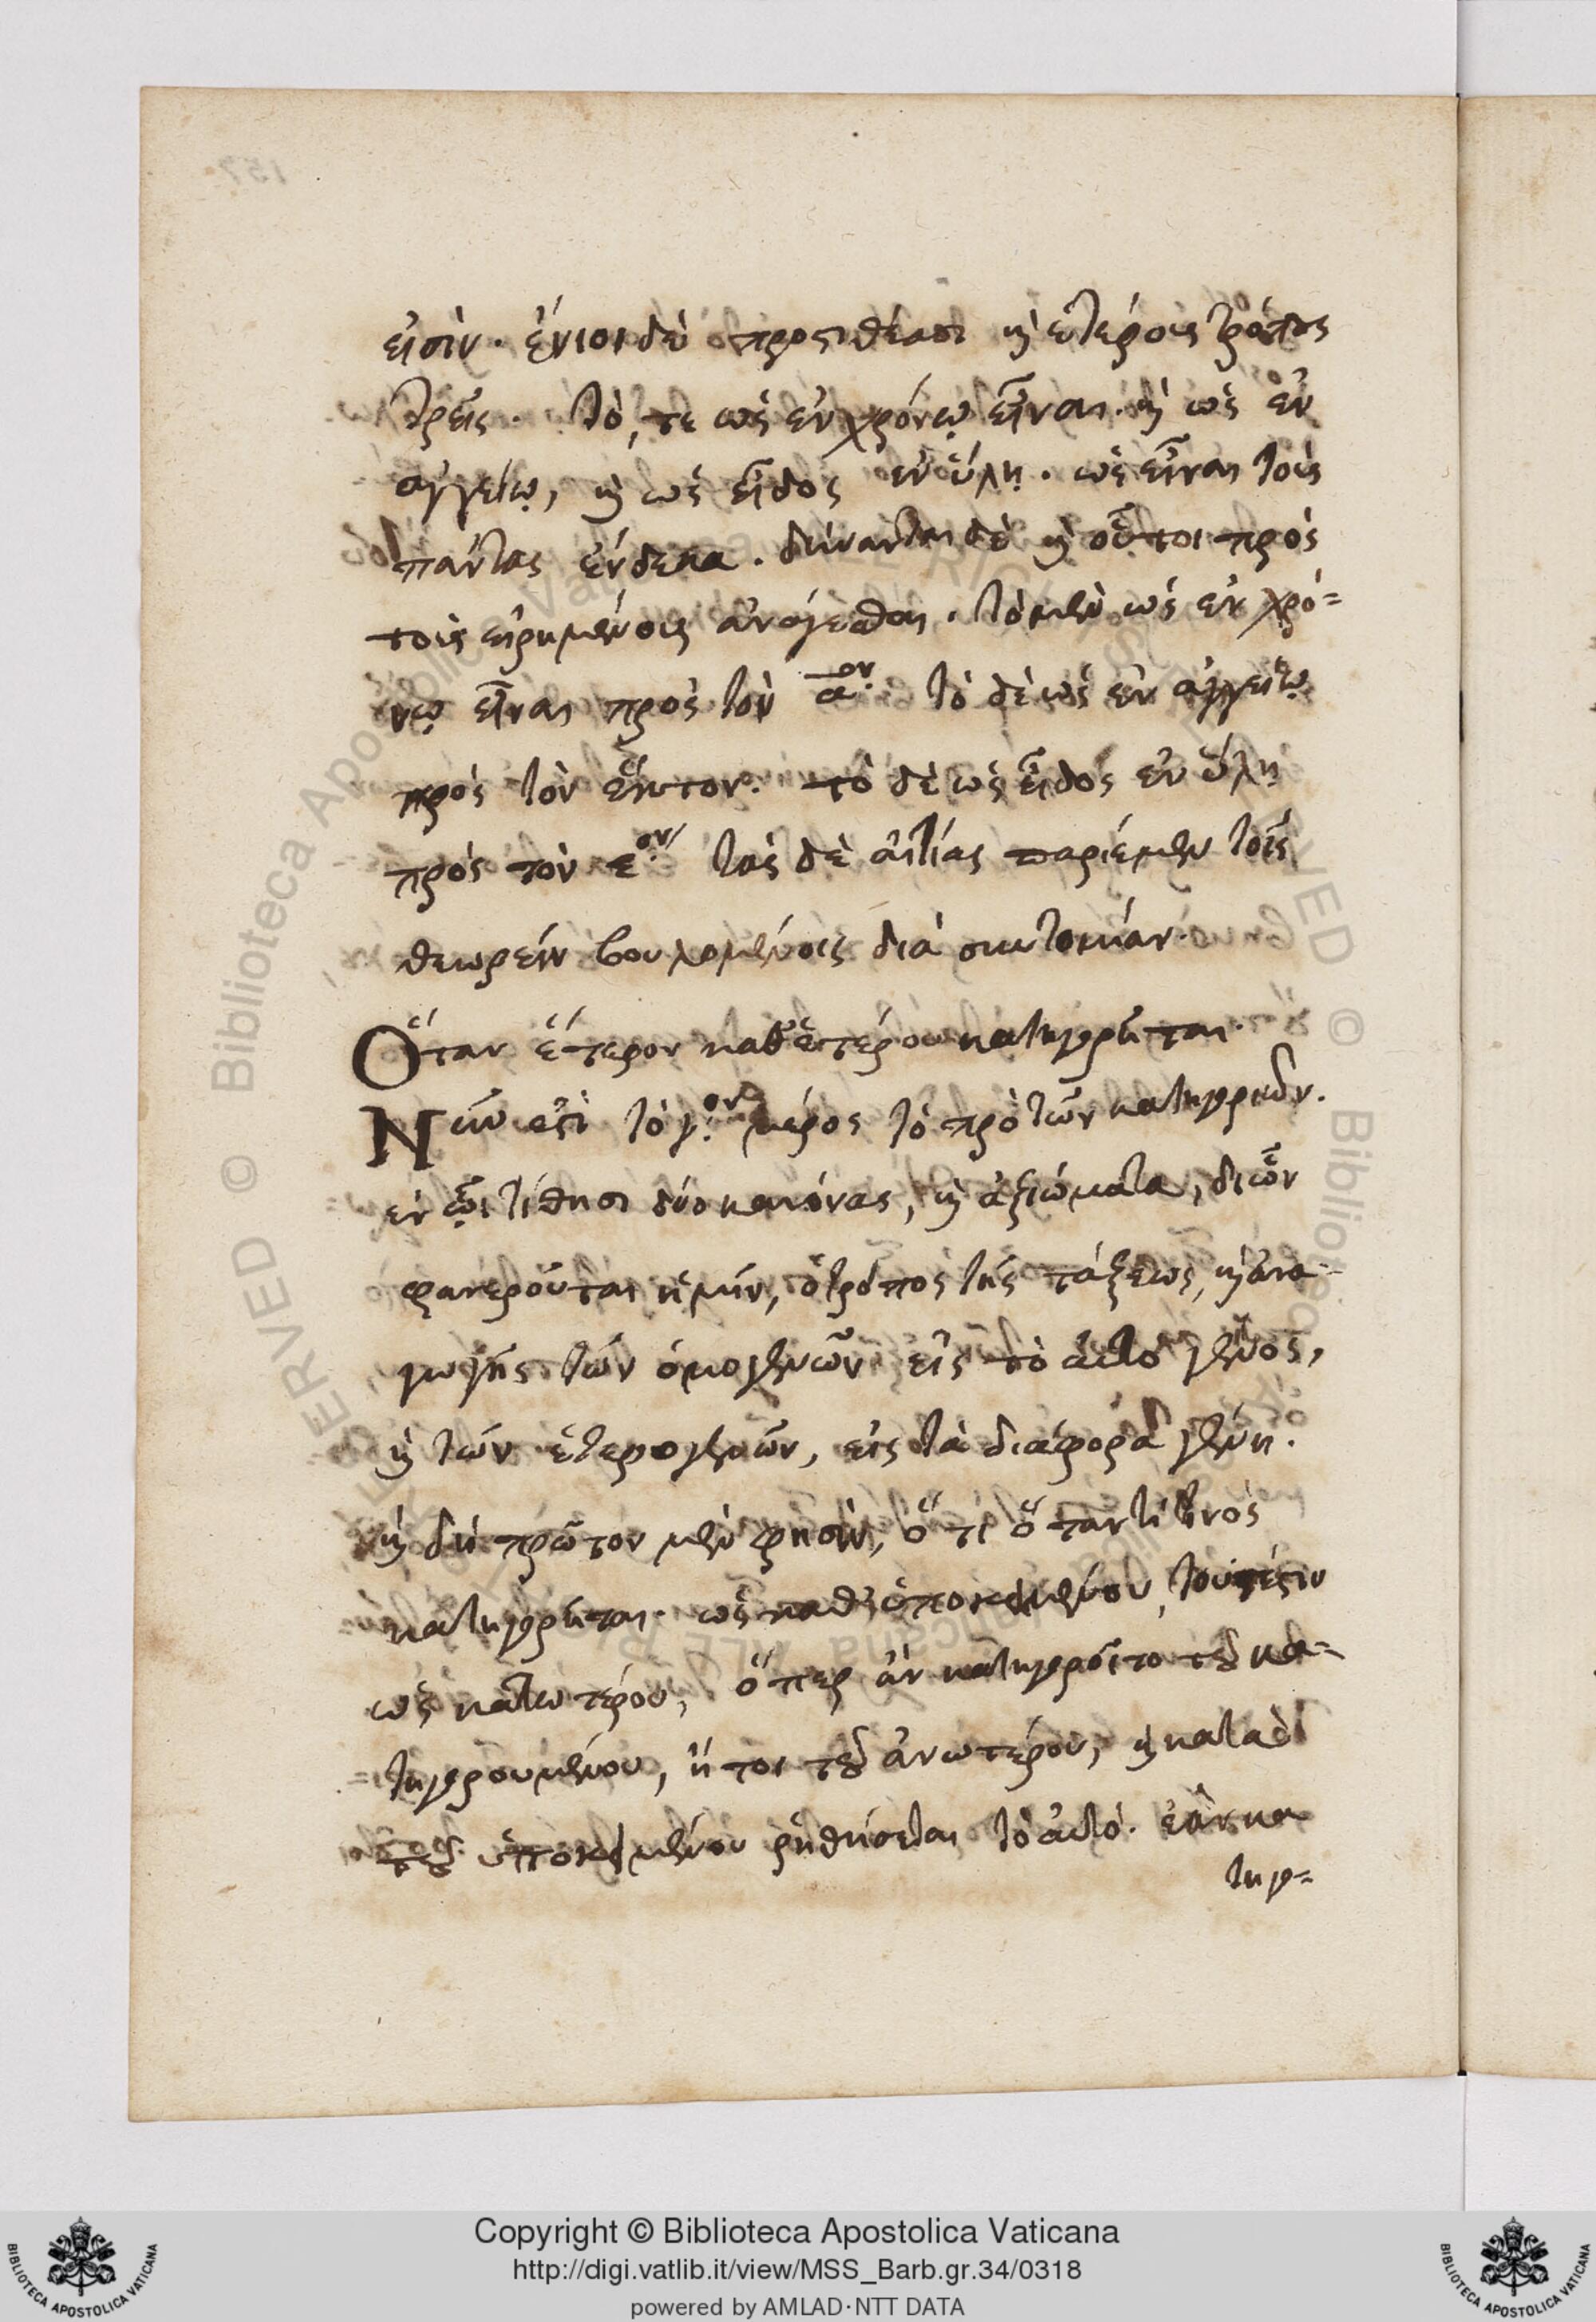 εἰσίν. ἔνιοι δὲ προστιθέασι καὶ ἑτέρους τρόπους
τρεῖς. τό, τε ὡς ἐν χρόνῳ εἶναι. καὶ ὡς ἐν
ἀγγείῳ, καὶ ὡς εἶδος ἐν ὕλῃ. ὡς εἶναι τοὺς
πάντας ἕνδεκα. δύνανται δὲ καὶ οὗτοι πρὸς
τοῖς εἰρημένοις ἀνάγεσθαι. τὸ μὲν ὡς ἐν χρό=
νῳ εἶναι πρὸς τὸν αον. τὸ δὲ ὡς ἐν ἀγγείῳ
πρὸς τὸν ἕκτον. τὸ δὲ ὡς εἶδος ἐν ὕλῃ
πρὸς τὸν εον. τὰς δὲ αἰτίας παρίεμεν τοῖς
θεωρεῖν βουλομένοις διὰ συντομίαν.
Ὅταν ἕτερον καθ' ἑτέρου κατηγορῆται.
Νῦν ἐστὶ τὸ γον μέρος τὸ πρὸ τῶν κατηγοριῶν.
ἐν ᾧ τίθησι δύο κανόνας, καὶ ἀξιώματα, δι' ὧν
φανεροῦται ἡμῖν, ὁ τρόπος τῆς τάξεως, καὶ ἀνα-
γωγῆς τῶν ὁμογενῶν εἰς τὸ αὐτὸ γένος,
καὶ τῶν ἑτερογενῶν, εἰς τὰ διάφορα γένη.
καὶ δὴ πρῶτον μὲν φησίν, ὅτι ὅταν τὶ τινὸς
κατηγορῆται. ὡς καθ' ὑποκειμένου, τουτέστιν
ὡς κατωτέρου, ὅπερ ἂν κατηγοροῖτο τοῦ κα=
τηγορουμένου, ἤτοι τοῦ ἀνωτέρου, καὶ κατὰ
τοῦ ὑποκειμένου ῥηθήσεται τὸ αὐτό. ἐὰν κα
τηγ=
Copyright © Biblioteca Apostolica Vaticana
http://digi.vatlib.it/view/MSS_Barb.gr.34/0318
powered by AMLAD·NTT DATA